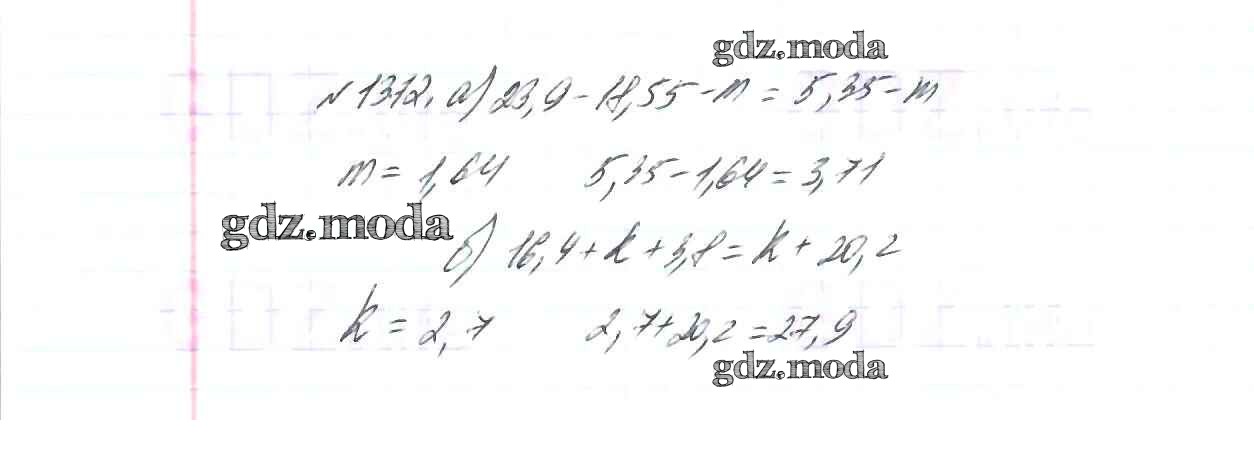 gdz.moda
№1312. а) 23,9-18,55-m=5,35-m
m=1,64 5,35-1,64=3,71
gdz.moda
б) 16,4+k+3,8=k+20,2
k=2,7 2,7+20,2=27,9
gdz.moda